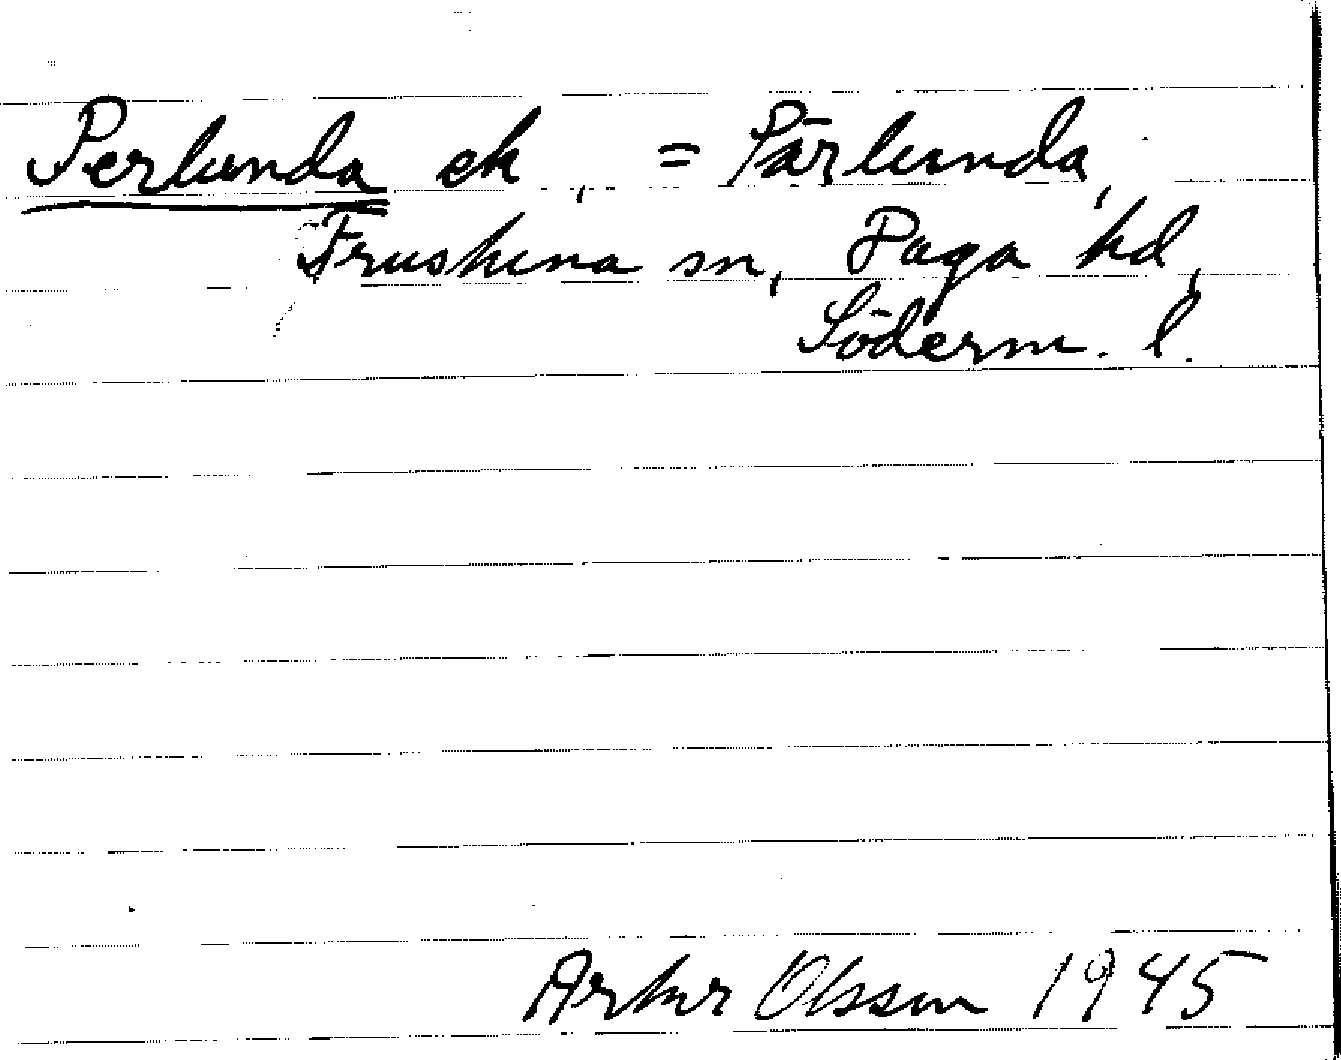 Perlunda ek , = Pärlunda,
Frustuna sn, Daga hd,
Söderm. l.
Artur Olsson 1945